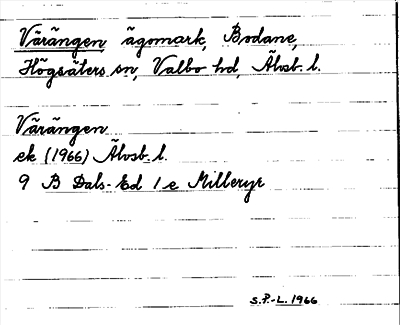 Värängen ägomark, Bodane,
Högsäters sn, Valbo hd, Älvsb. l.
Värängen
ek (1966) Älvsb. l.
9 B Dals-Ed 1 e Milleryr
S.P.-L. 1966